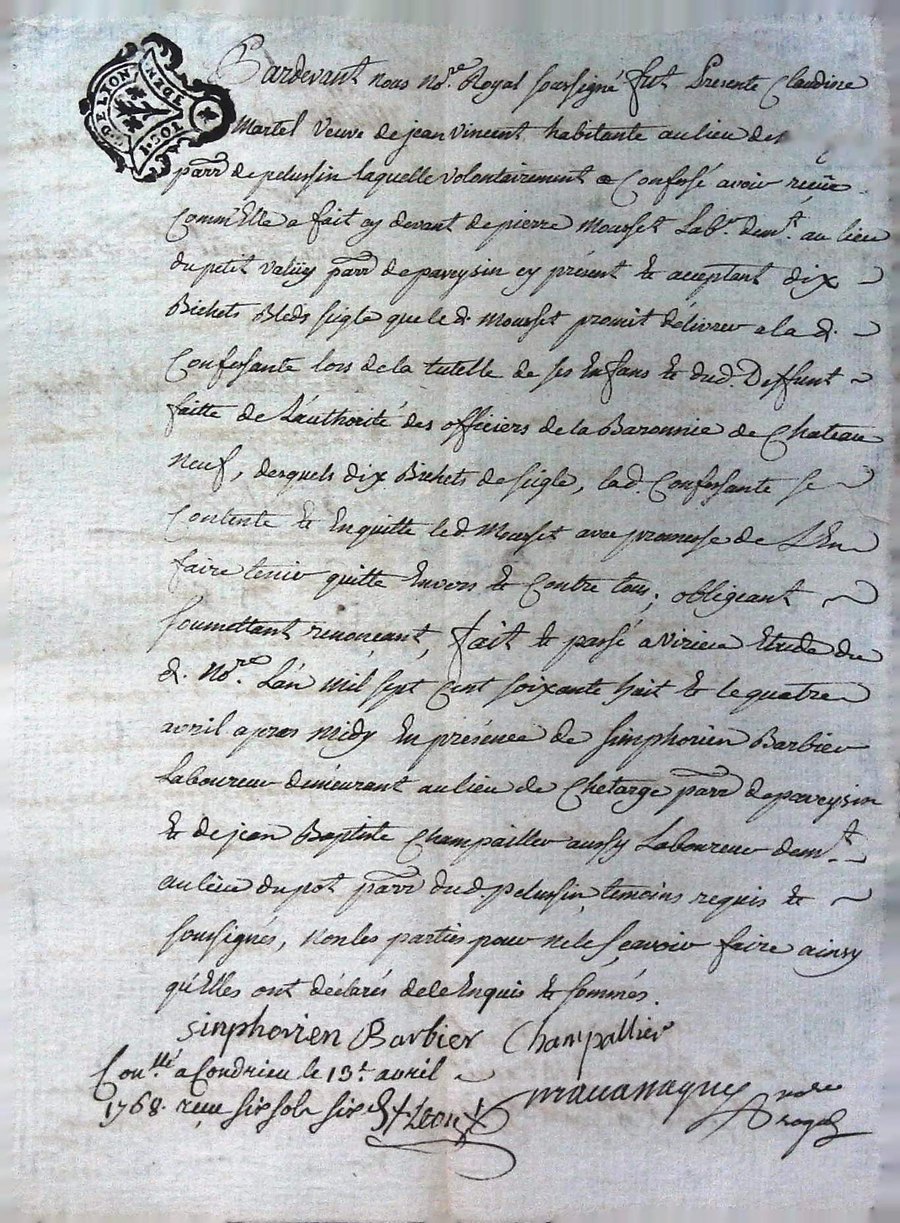 DE LION
1. SOL
3. DEN
Pardevant nous No.re Royal soussigné fut Presente Claudine
Martel Veuve de jean Vincent habitante au lieu des
parr de pelussin laquelle volontairement a Confessé avoir reçüe
Comm'Elle a fait cy devant de pierre Mousset Lab.r dem.t au lieu
du petit Valüy parr de paveysin cy présent & acceptant dix
Bichets Bleds seigle que le d. Mousset promit délivrer a la d.
Confessante lors de la tutelle de ses Enfans & dud. Deffunt
faitte de L'authorité des officiers de la Baronnie de Chateau
neuf, desquels dix Bichets de seigle, lad. Confessante se
Contente & En quitte led Mousset avec promesse de L'En
faire tenir quitte Envers & Contre tous; obligeant
soumettant renonçant, fait & passé a Virieu Etude du
d. No.re L'an Mil sept Cent soixante huit & le quatre
avril apres Midy En présence de simphorien Barbier
Laboureur demeurant au lieu de Chetarge parr de paveysin
& de jean Baptiste Champailler aussy Laboureur dem.t
au lieu du pot parr dud pelussin, temoins requis &
soussignés, non les parties pour ne le sçavoir faire ainsy
qu'Elles ont déclarés de le Enquis & sommés.
sinphorien Barbier Champallier
Con.llé a Condrieu le 13.t avril
1768. reçu six sols six d. no.re
royal